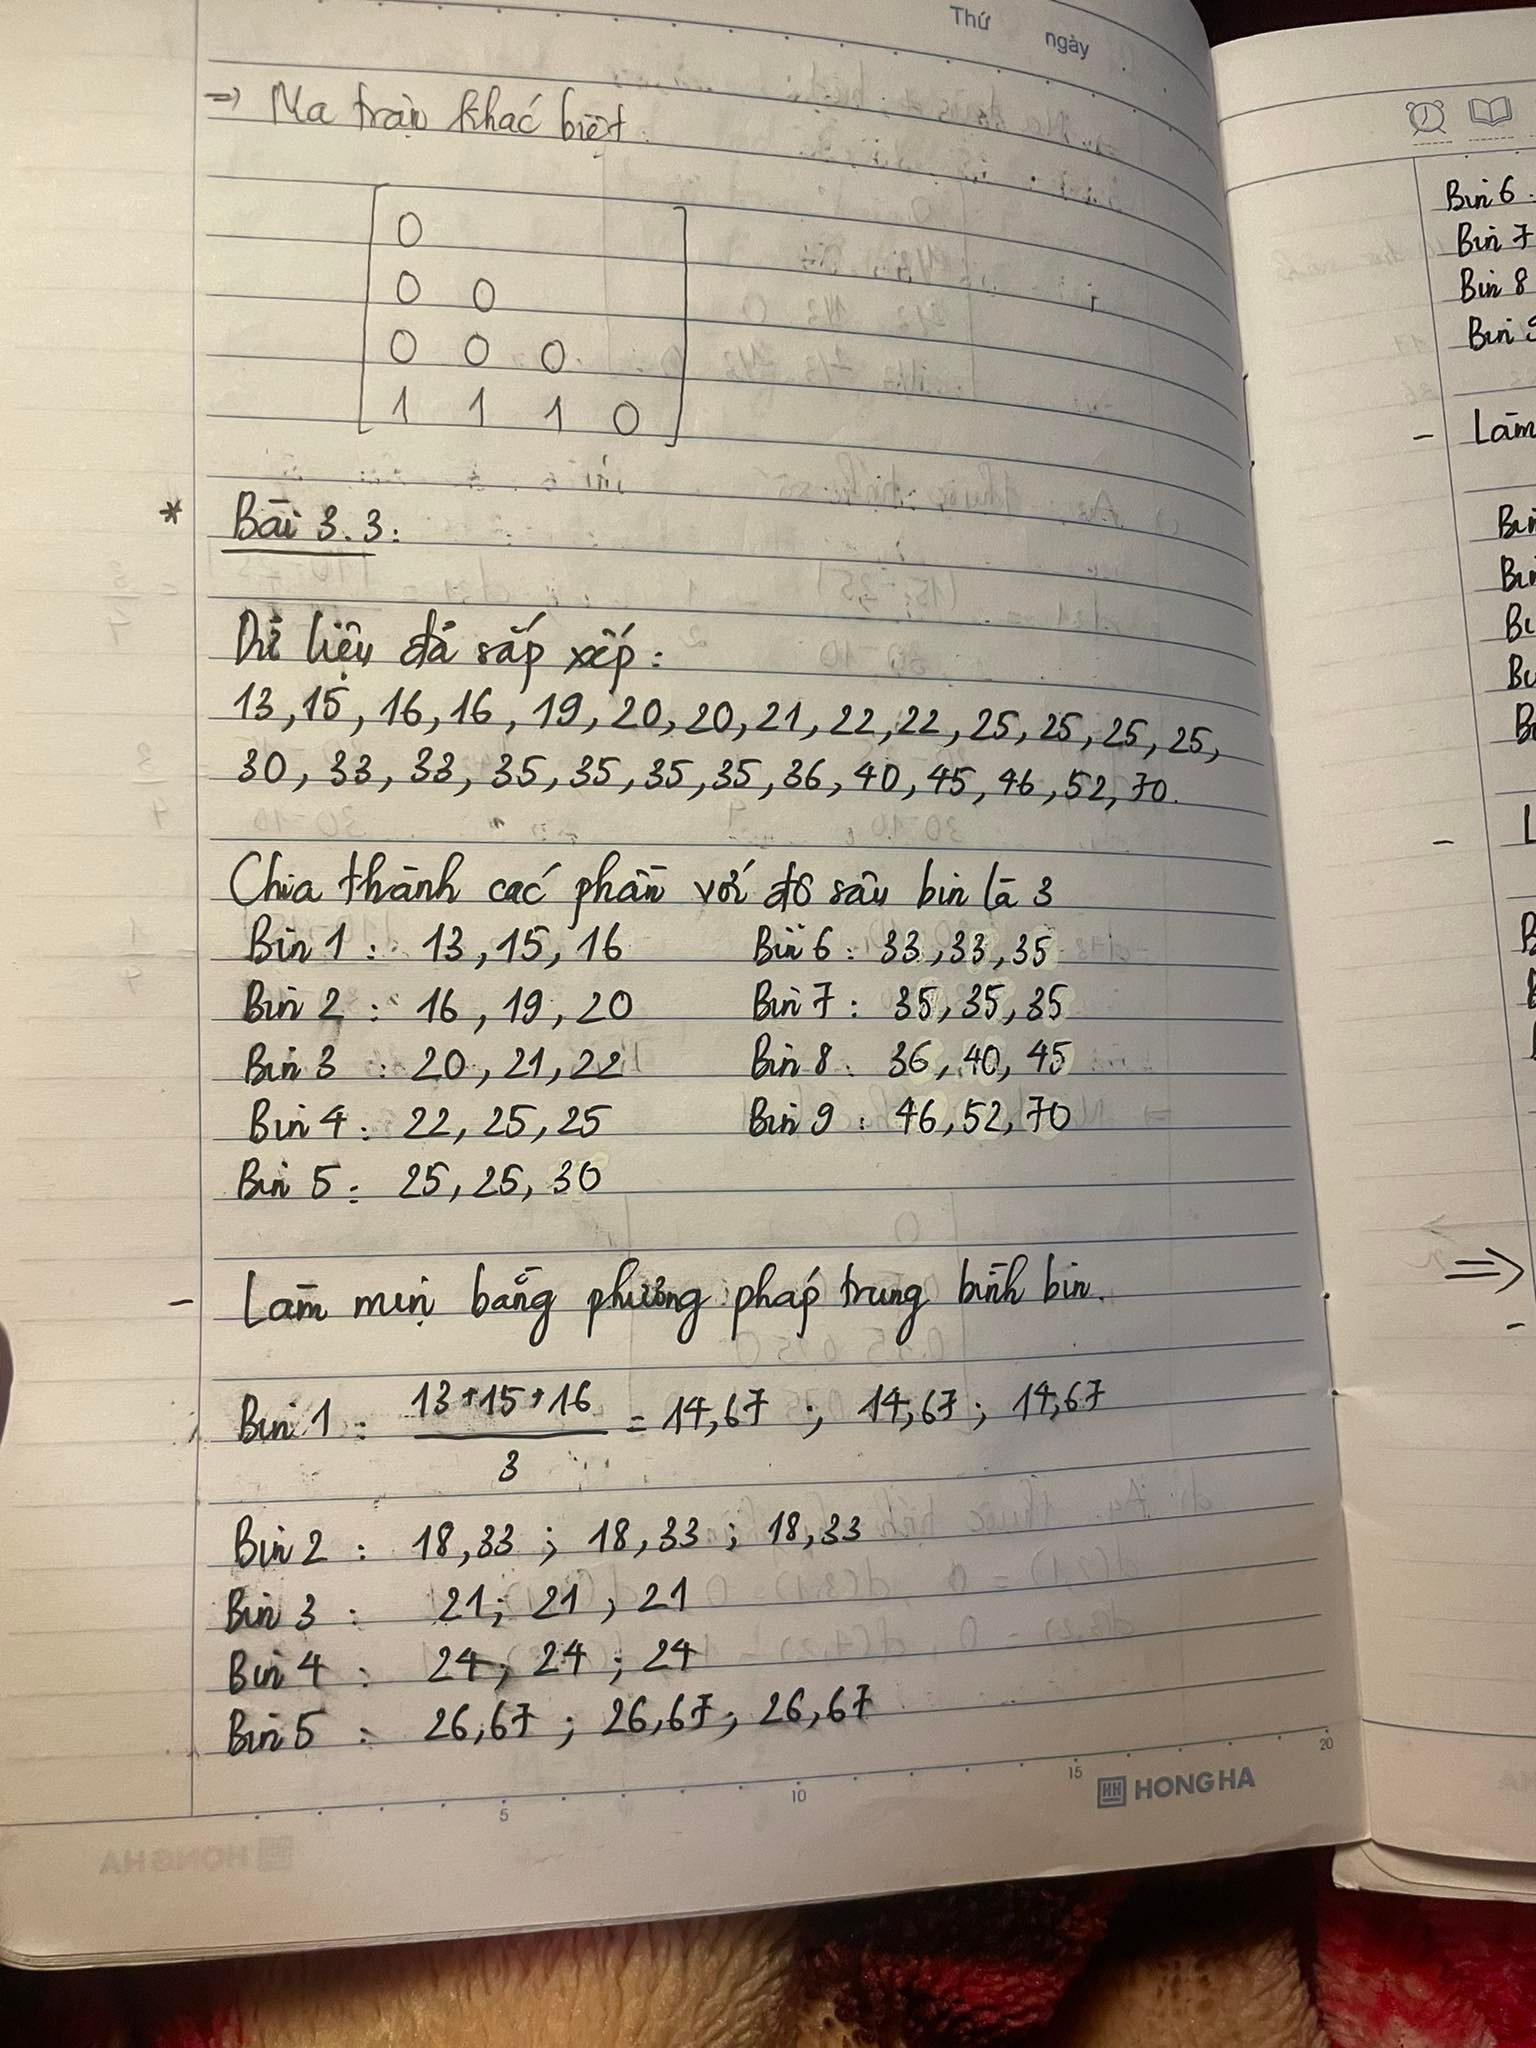 Thứ ngày
=> Ma trận khác biệt.
0
0 0
0 0 0
1 1 1 0
* Bài 3.3:
Dữ liệu đã sắp xếp:
13, 15, 16, 16, 19, 20, 20, 21, 22, 22, 25, 25, 25, 25,
30, 33, 33, 35, 35, 35, 35, 36, 40, 45, 46, 52, 70.
Chia thành các phần với độ sâu bin là 3
Bin 1 : 13, 15, 16 Bin 6 : 33, 33, 35
Bin 2 : 16, 19, 20 Bin 7 : 35, 35, 35
Bin 3 : 20, 21, 22 Bin 8 : 36, 40, 45
Bin 4 : 22, 25, 25 Bin 9 : 46, 52, 70
Bin 5 : 25, 25, 30
- Làm mịn bằng phương pháp trung bình bin.
Bin 1 : 13+15+16 / 3 = 14,67 ; 14,67 ; 14,67
Bin 2 : 18,33 ; 18,33 ; 18,33
Bin 3 : 21 ; 21 ; 21
Bin 4 : 24 ; 24 ; 24
Bin 5 : 26,67 ; 26,67 ; 26,67
5 10 15 20
HH HONG HA
Bin 6 :
Bin 7
Bin 8
Bin 9
- Làm
=>
-